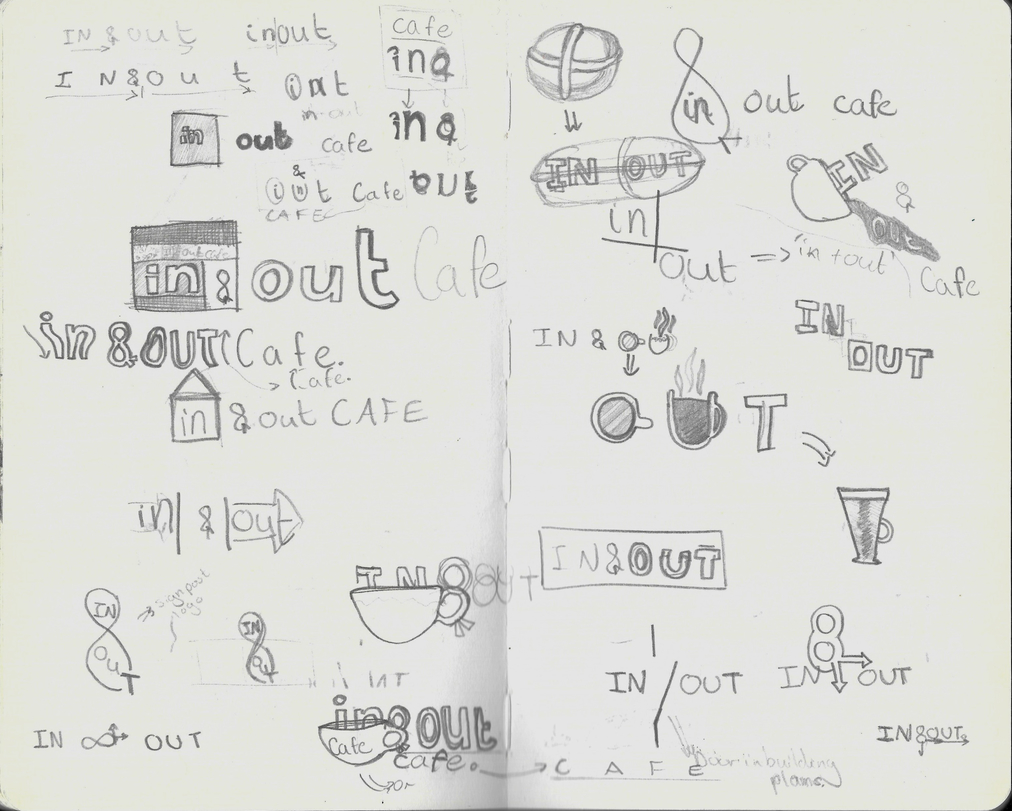 IN & out
inout
cafe
in&
I N&O u t
out
in
out
cafe
in&
out
& out Cafe
CAFE
in & out Cafe
in & OUT Cafe.
Cafe.
in & out CAFE
in & out
IN
OUT
sign post logo
IN
OUT
IN & OUT
IN OUT
in & out
Cafe
cafe.
or
in out cafe
IN OUT
in
out
in + out
IN
&
OUT
Cafe
IN &
IN
OUT
T
IN & OUT
IN / OUT
IN & OUT
IN & OUT
C A F E
Door in building plans.